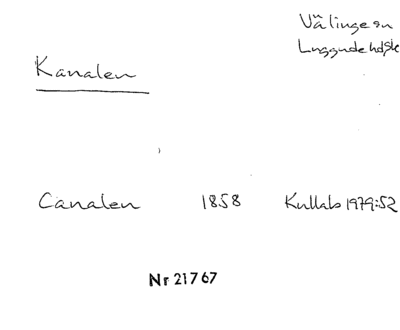 Välinge sn
Luggude hd
Kanalen
Canalen 1858 Kullab 1979:52
Nr 21767